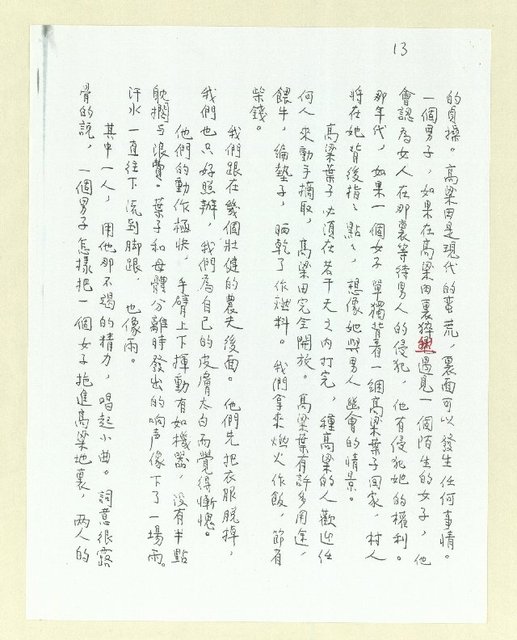 13
的貞操。高粱田是現代的蛮荒，裏面可以發生任何事情。
一個男子，如果在高粱田裏猝然遇見一個陌生的女子，他
會認為女人在那裏等待男人的侵犯，他有侵犯她的權利。
那年代，如果一個女子單獨背着一綑高粱葉子回家，村人
將在她背後指指點點，想像她與男人幽會的情景。
高粱葉子必須在若干天之內打完，種高粱的人歡迎任
何人來動手摘取，高粱田完全開放。高粱葉有許多用途，
餵牛，編墊子，晒乾了作燃料。我們拿來燒火作飯，節省
柴錢。
我們跟在幾個壯健的農夫後面。他們先把衣服脫掉，
我們也只好照辦，我們為自己的皮膚太白而覺得慚愧。
他們的動作極快，手臂上下揮動有如機器，沒有半點
耽擱与浪費。葉子和母體分離時發出的响声像下了一場雨。
汗水一直往下流到脚跟，也像雨。
其中一人，用他那不竭的精力，唱起小曲。詞意很露
骨的說，一個男子怎樣把一個女子拖進高粱地裏，两人的